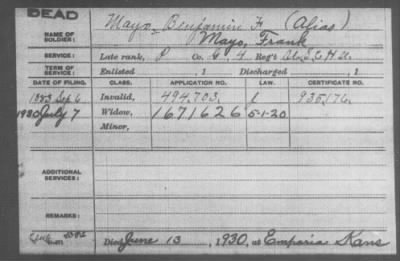 DEAD
Mayo, Benjamin F. (Alias)
NAME OF SOLDIER: Mayo, Frank
SERVICE: Late rank, P Co. G, 4 Reg't
TERM OF SERVICE: Enlisted , 1 Discharged , 1
DATE OF FILING. CLASS. APPLICATION NO. LAW. CERTIFICATE NO.
1883 Sep 6 Invalid, 494.703. 935.176.
1930 July 7 Widow, 1671626 5-1-20
Minor,
ADDITIONAL SERVICES:
REMARKS:
Died June 13 , 1930, at Emporia Kans